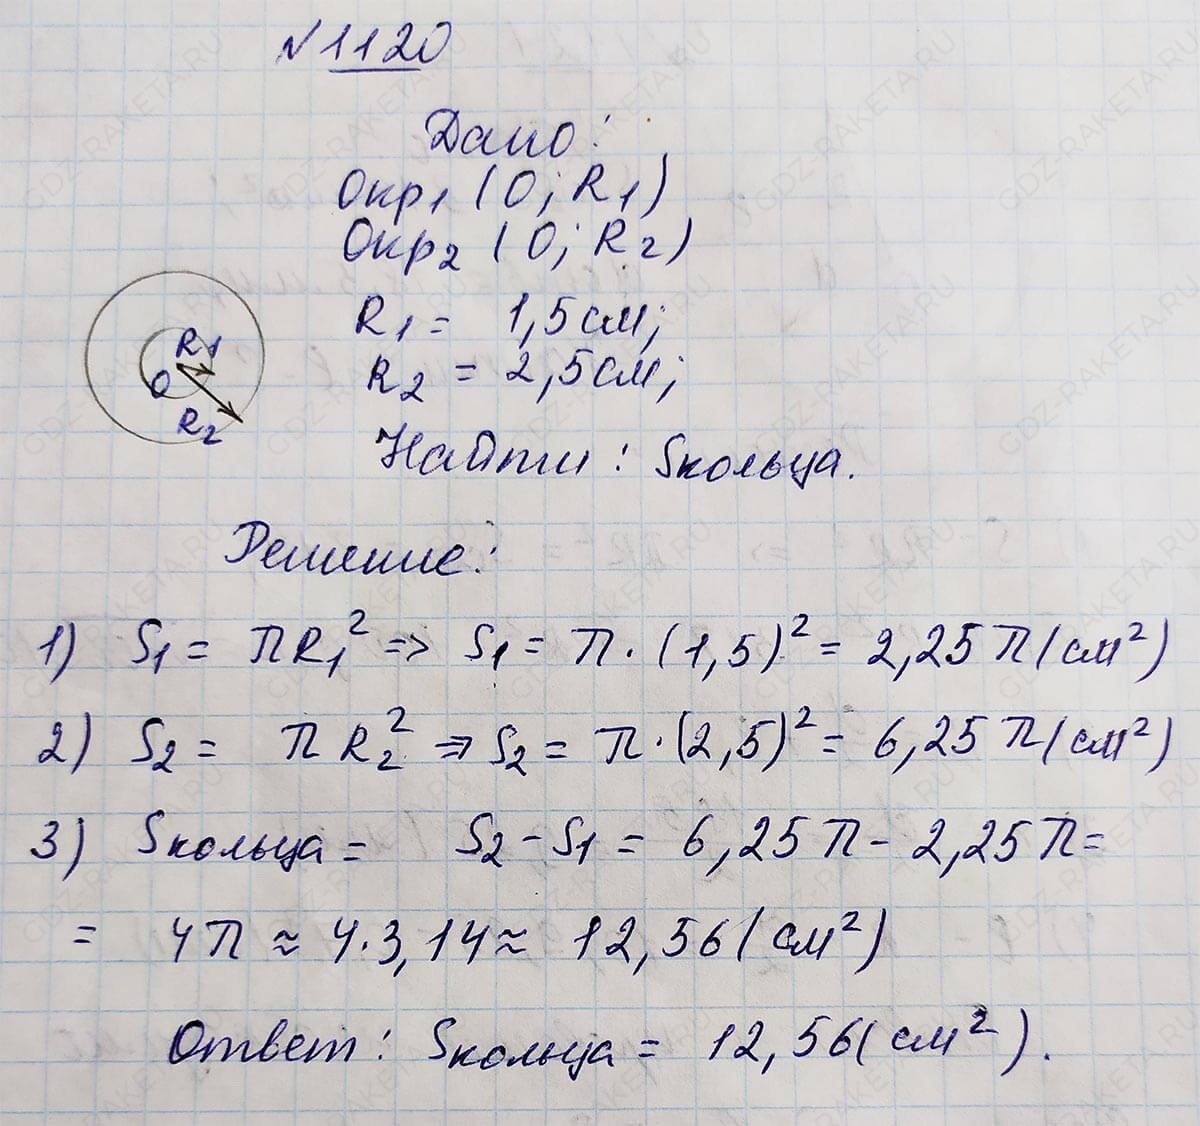 №1120
Дано:
Окр₁ (О; R₁)
Окр₂ (О; R₂)
R₁ = 1,5 см;
R₂ = 2,5 см;
R₁
О
R₂
Найти: Sкольца.
Решение:
1) S₁ = πR₁² => S₁ = π · (1,5)² = 2,25 π (см²)
2) S₂ = πR₂² => S₂ = π · (2,5)² = 6,25 π (см²)
3) Sкольца = S₂ - S₁ = 6,25 π - 2,25 π =
= 4π ≈ 4 · 3,14 ≈ 12,56 (см²)
Ответ: Sкольца = 12,56 (см²).
GDZ-RAKETA.RU